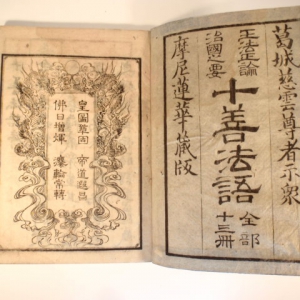 葛城慈雲尊者示衆
王法正論
治國之要
十善法語 全部十三冊
摩尼蓮華藏版
皇圖鞏固 帝道遐昌
佛日増輝 灋輪常轉